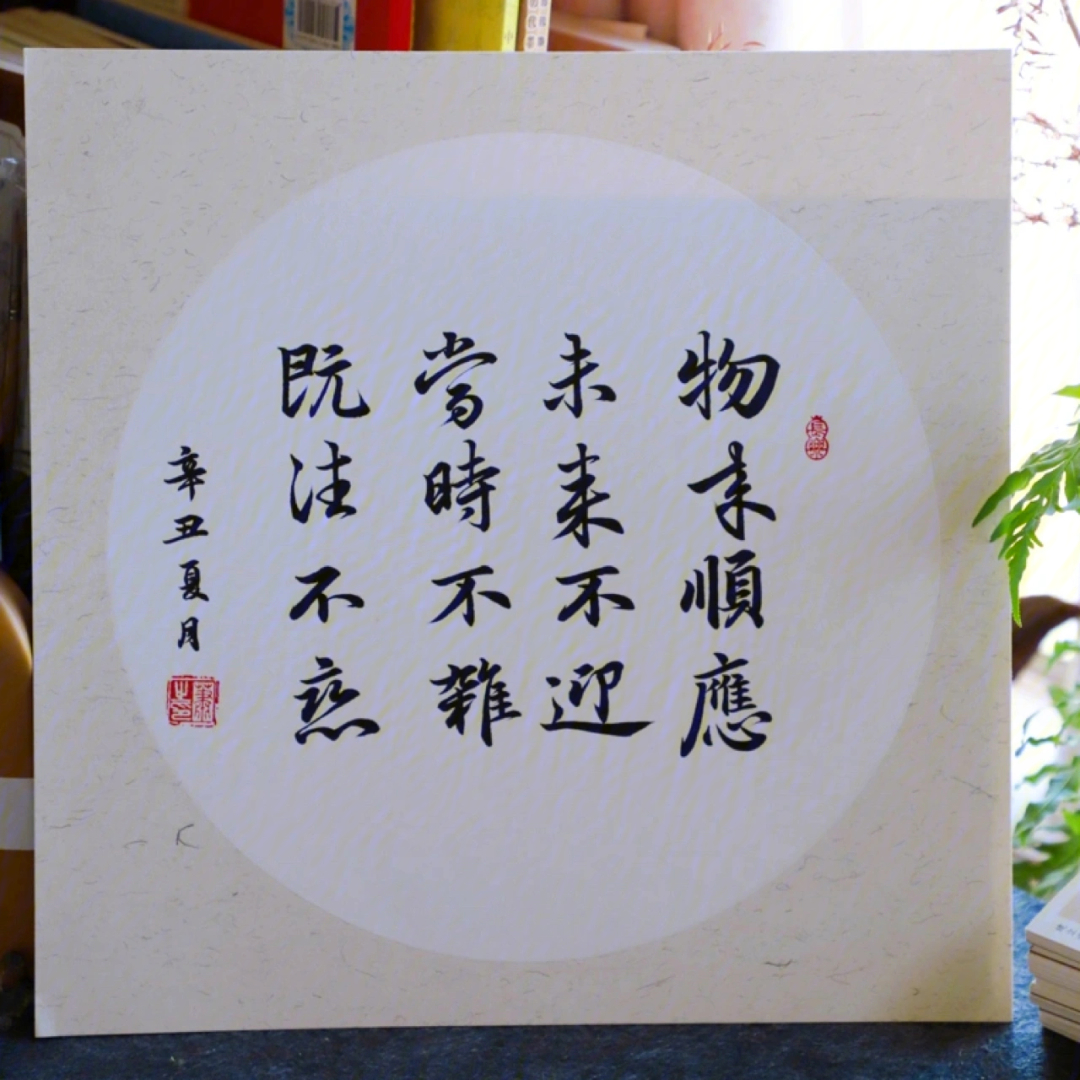 物来順應
未来不迎
當時不雜
既往不恋
辛丑夏月